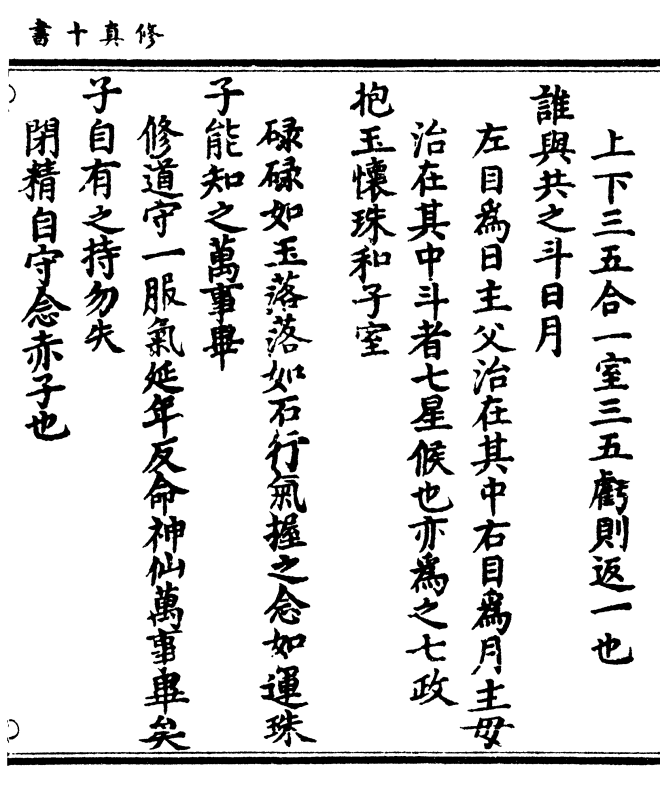 修真十書
上下三五合一室三五虧則返一也
誰與共之斗日月
左目為日主父治在其中右目為月主母
治在其中斗者七星候也亦為之七政
抱玉懷珠和子室
碌碌如玉落落如石行氣握之念如運珠
子能知之萬事畢
修道守一服氣延年反命神仙萬事畢矣
子自有之持勿失
閉精自守念赤子也